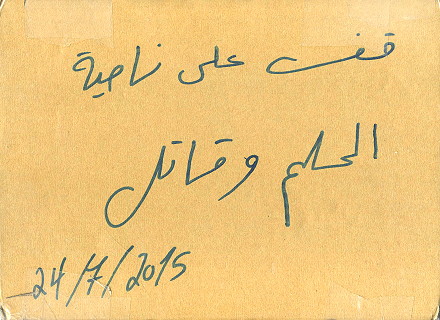 قف على ناحية
الحلم وقاتل
24/7/2015